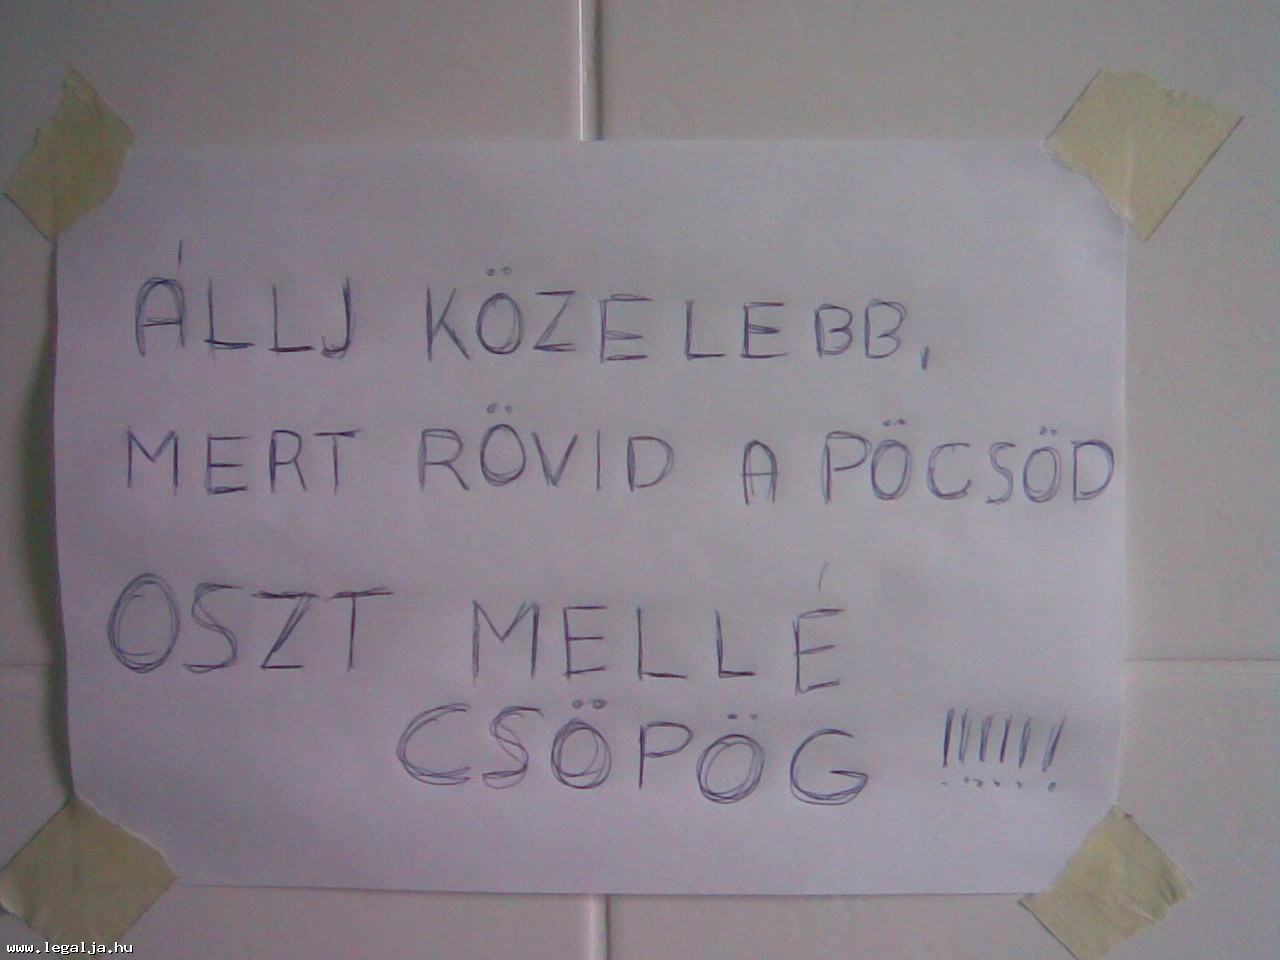 ÁLLJ KÖZELEBB,
MERT RÖVID A PÖCSÖD
OSZT MELLÉ
CSÖPÖG !!!!!!!
www.legalja.hu